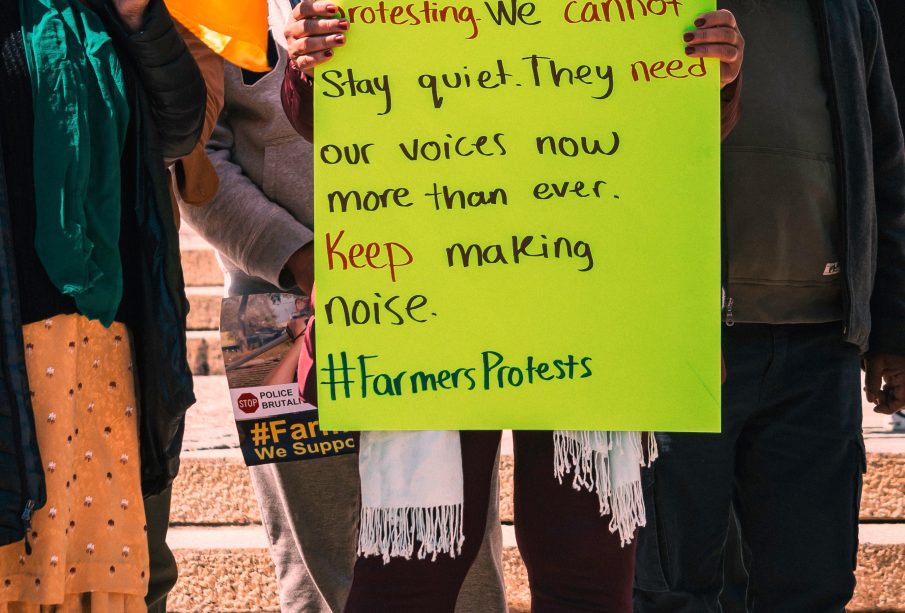 protesting. We cannot
Stay quiet. They need
our voices now
more than ever.
Keep making
noise.
#FarmersProtests
STOP
POLICE
BRUTALI
#Far
We Suppo